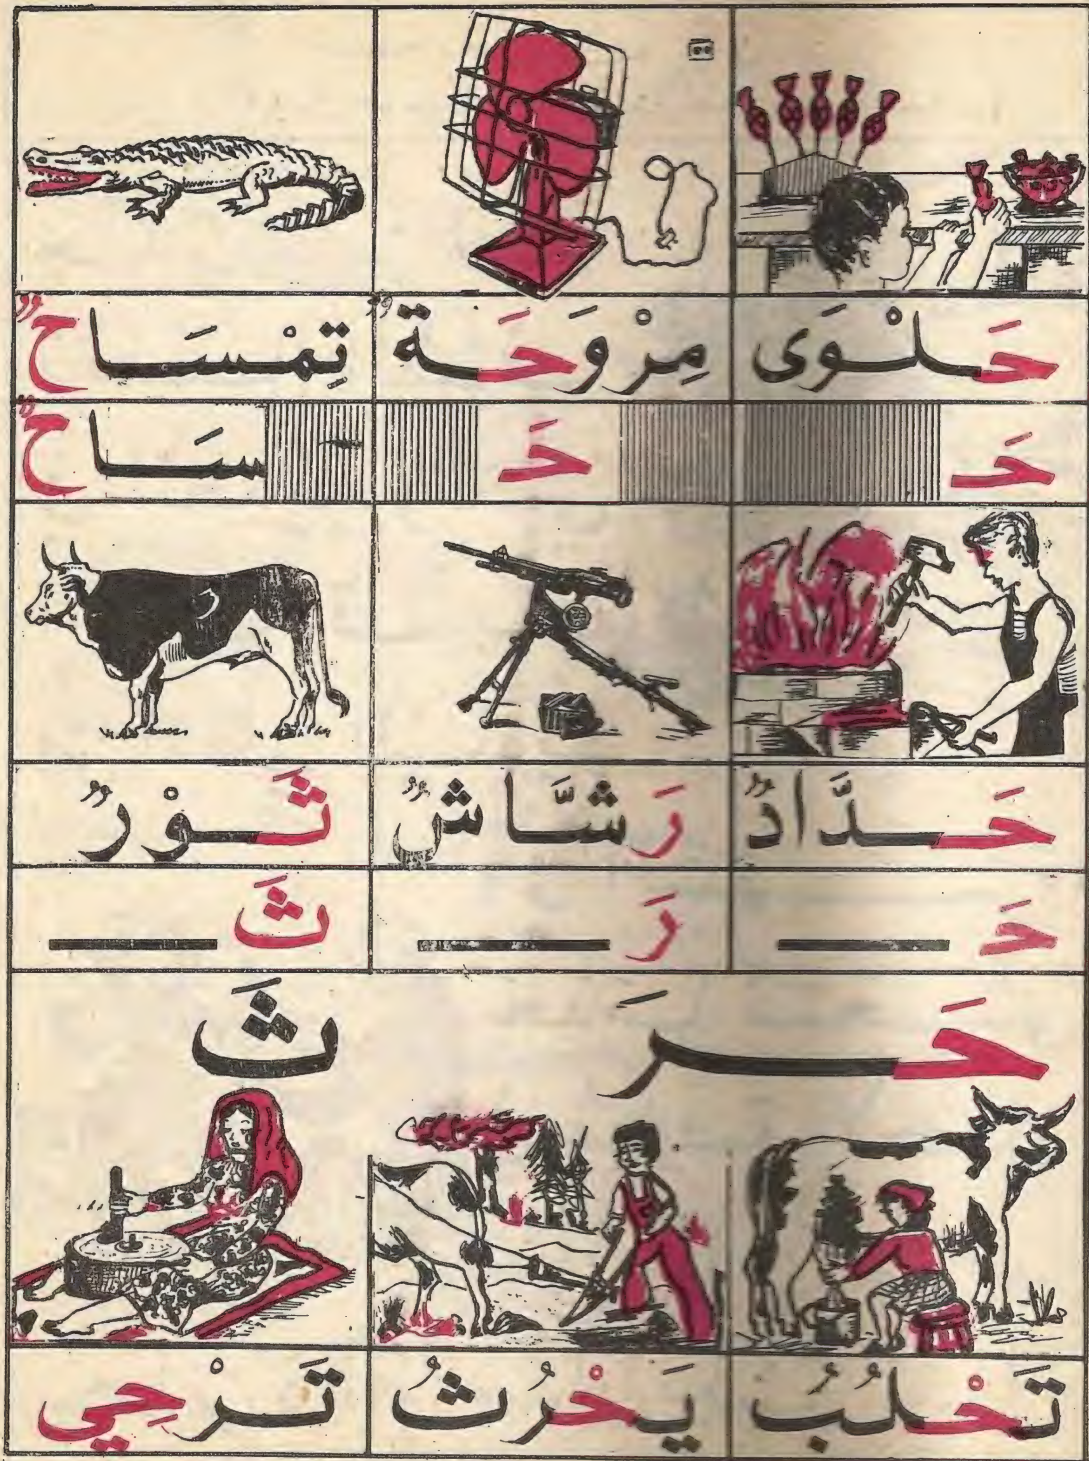 حَلْوَى مِرْوَحَةٌ تِمْسَاحٌ
حَ حَ سَاحٌ
حَدَّادٌ رَشَّاشٌ ثَوْرٌ
حَ رَ ثَ
حَرَثَ
تَحْلُبُ يَحْرُثُ تَرْحِي